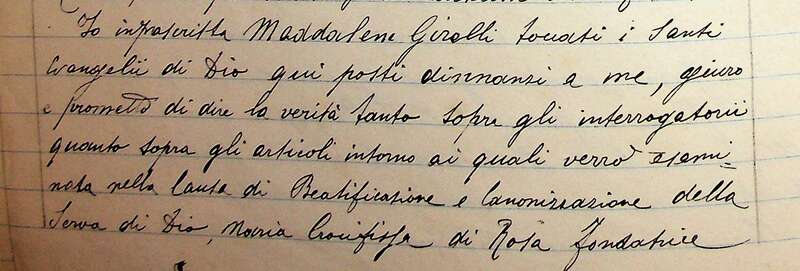 Io infrascritta Maddalena Girelli toccati i Santi
Evangelii di Dio qui posti dinnanzi a me, giuro
e prometto di dire la verità tanto sopra gli interrogatorii
quanto sopra gli articoli intorno ai quali verrò esami-
nata nella Causa di Beatificazione e Canonizzazione della
Serva di Dio, Maria Crocifissa di Rosa fondatrice